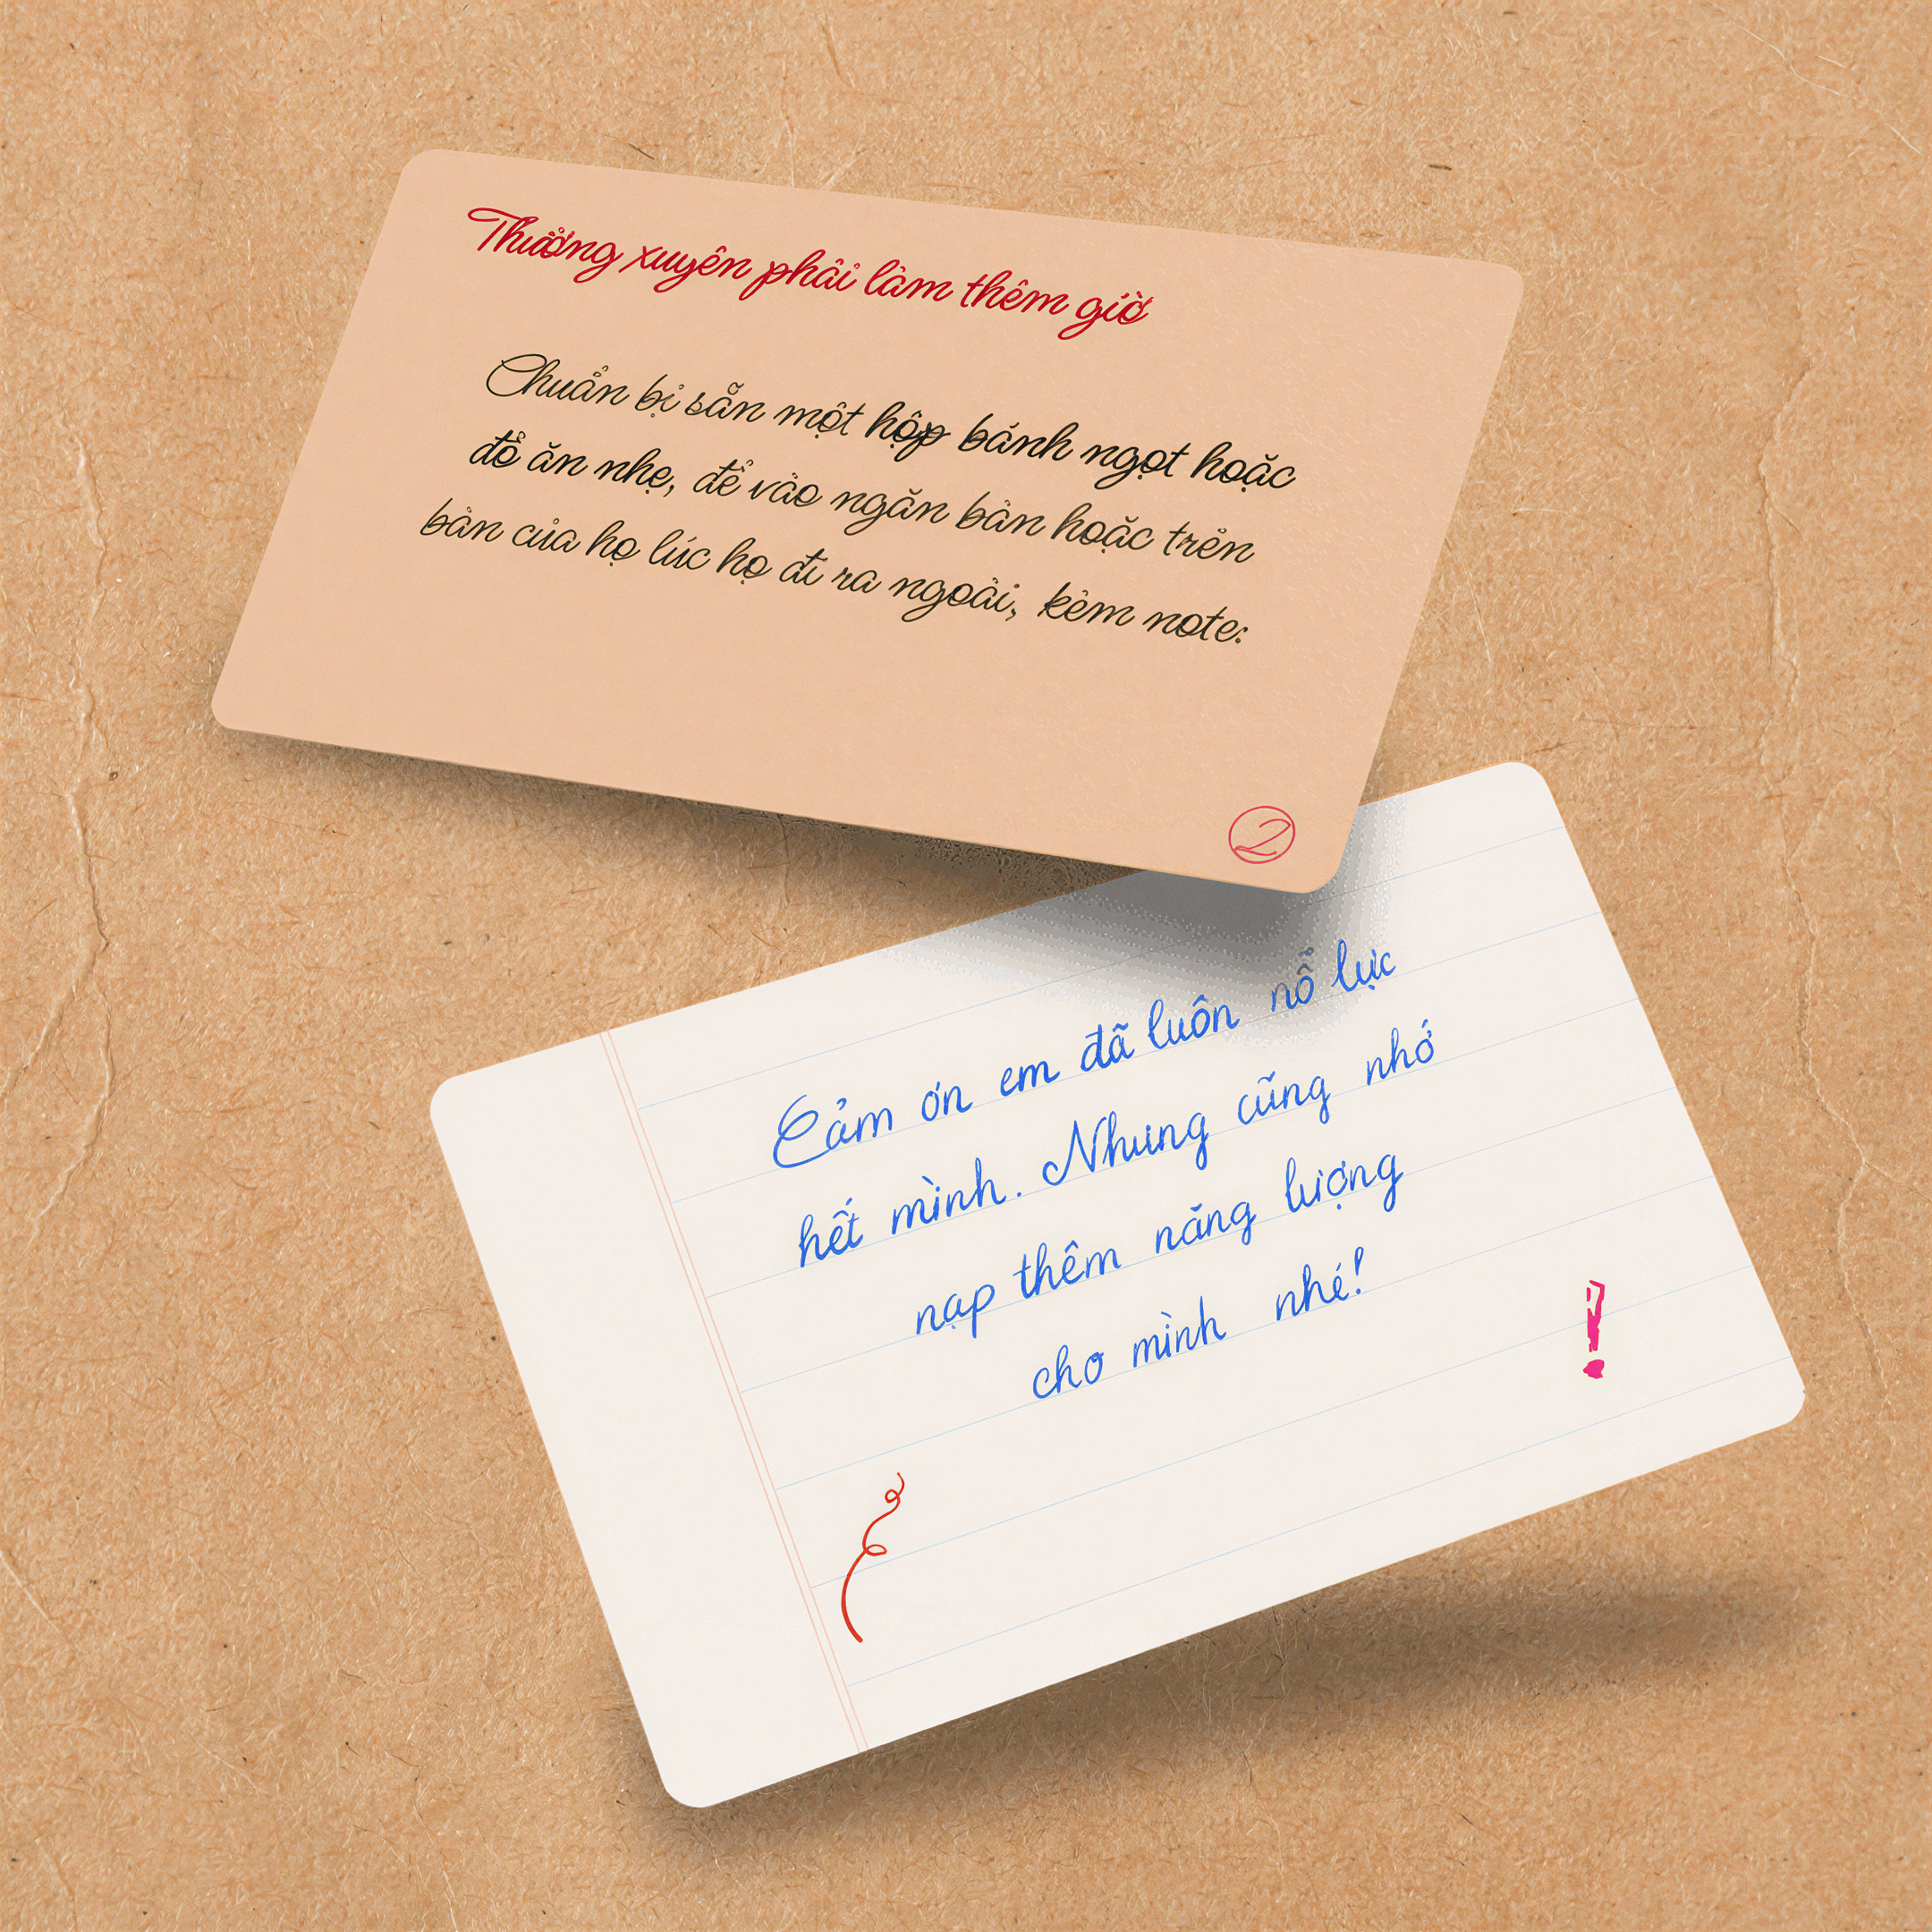 Thường xuyên phải làm thêm giờ
Chuẩn bị sẵn một hộp bánh ngọt hoặc
đồ ăn nhẹ, để vào ngăn bàn hoặc trên
bàn của họ lúc họ đi ra ngoài, kèm note:
2
Cảm ơn em đã luôn nỗ lực
hết mình. Nhưng cũng nhớ
nạp thêm năng lượng
cho mình nhé!
!